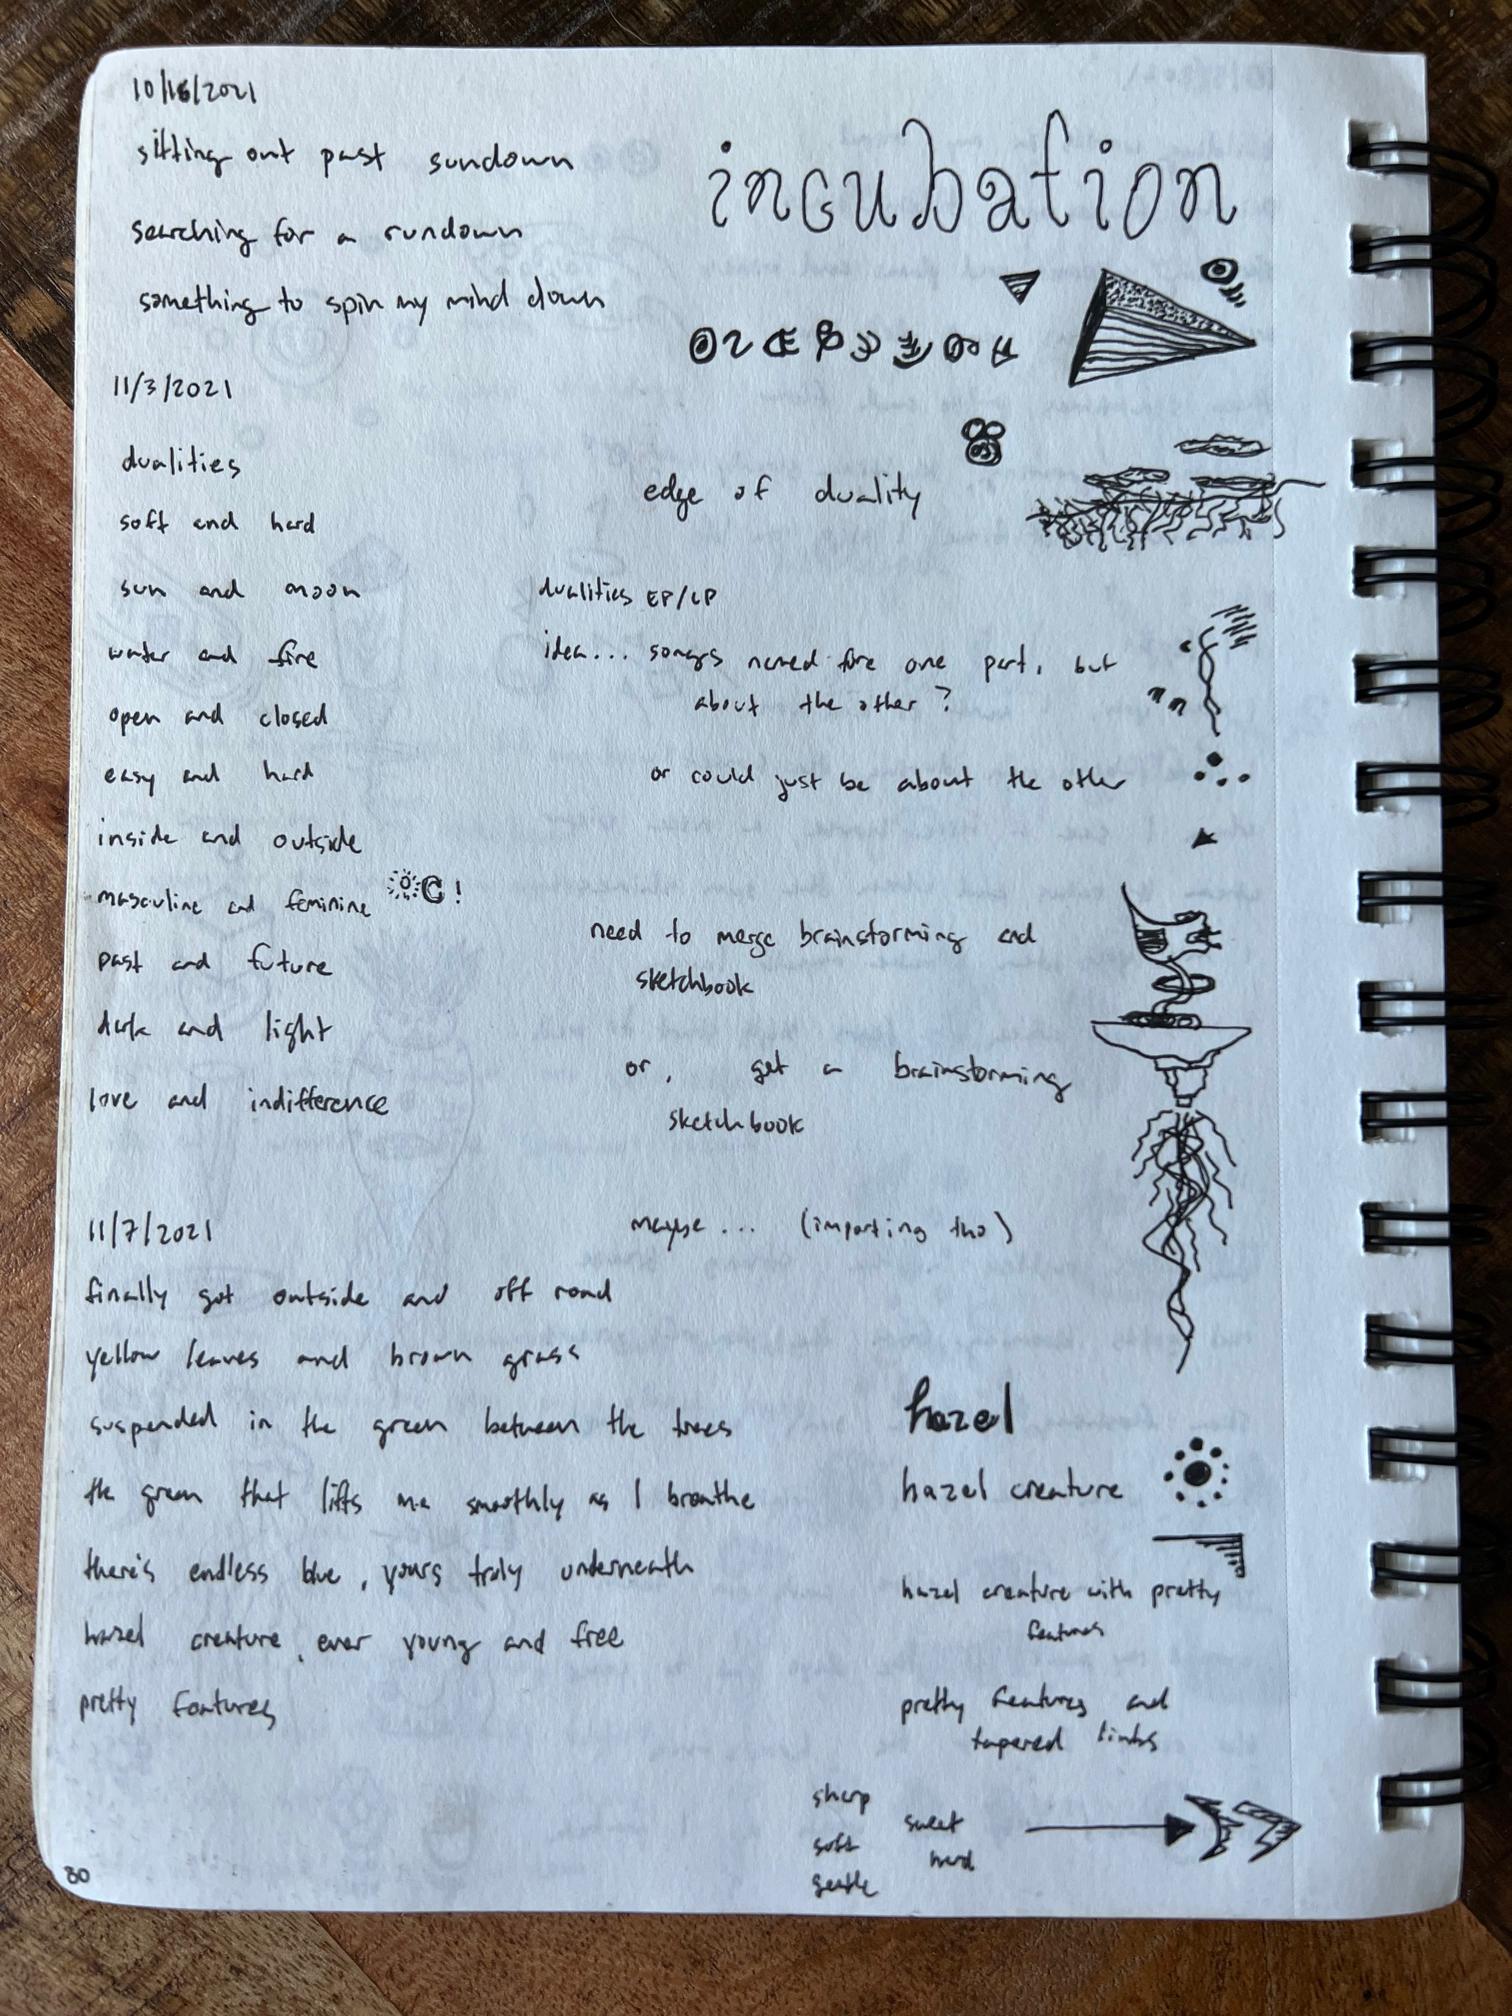 10/16/2021
sitting out past sundown
searching for a rundown
something to spin my mind down
incubation
11/3/2021
dualities
soft and hard
sun and moon
water and fire
open and closed
easy and hard
inside and outside
masculine and feminine !
past and future
dark and light
love and indifference
edge of duality
dualities EP/LP
idea... songs named for one part, but
about the other?
or could just be about the other
need to merge brainstorming and
sketchbook
or, get a brainstorming
sketchbook
maybe... (importing tho)
11/7/2021
finally got outside and off road
yellow leaves and brown grass
suspended in the green between the trees
the green that lifts me smoothly as I breathe
there's endless blue, yours truly underneath
hazel creature, ever young and free
pretty features
hazel
hazel creature
hazel creature with pretty
features
pretty features and
tapered limbs
sharp
soft
gentle
sweet
hard
80